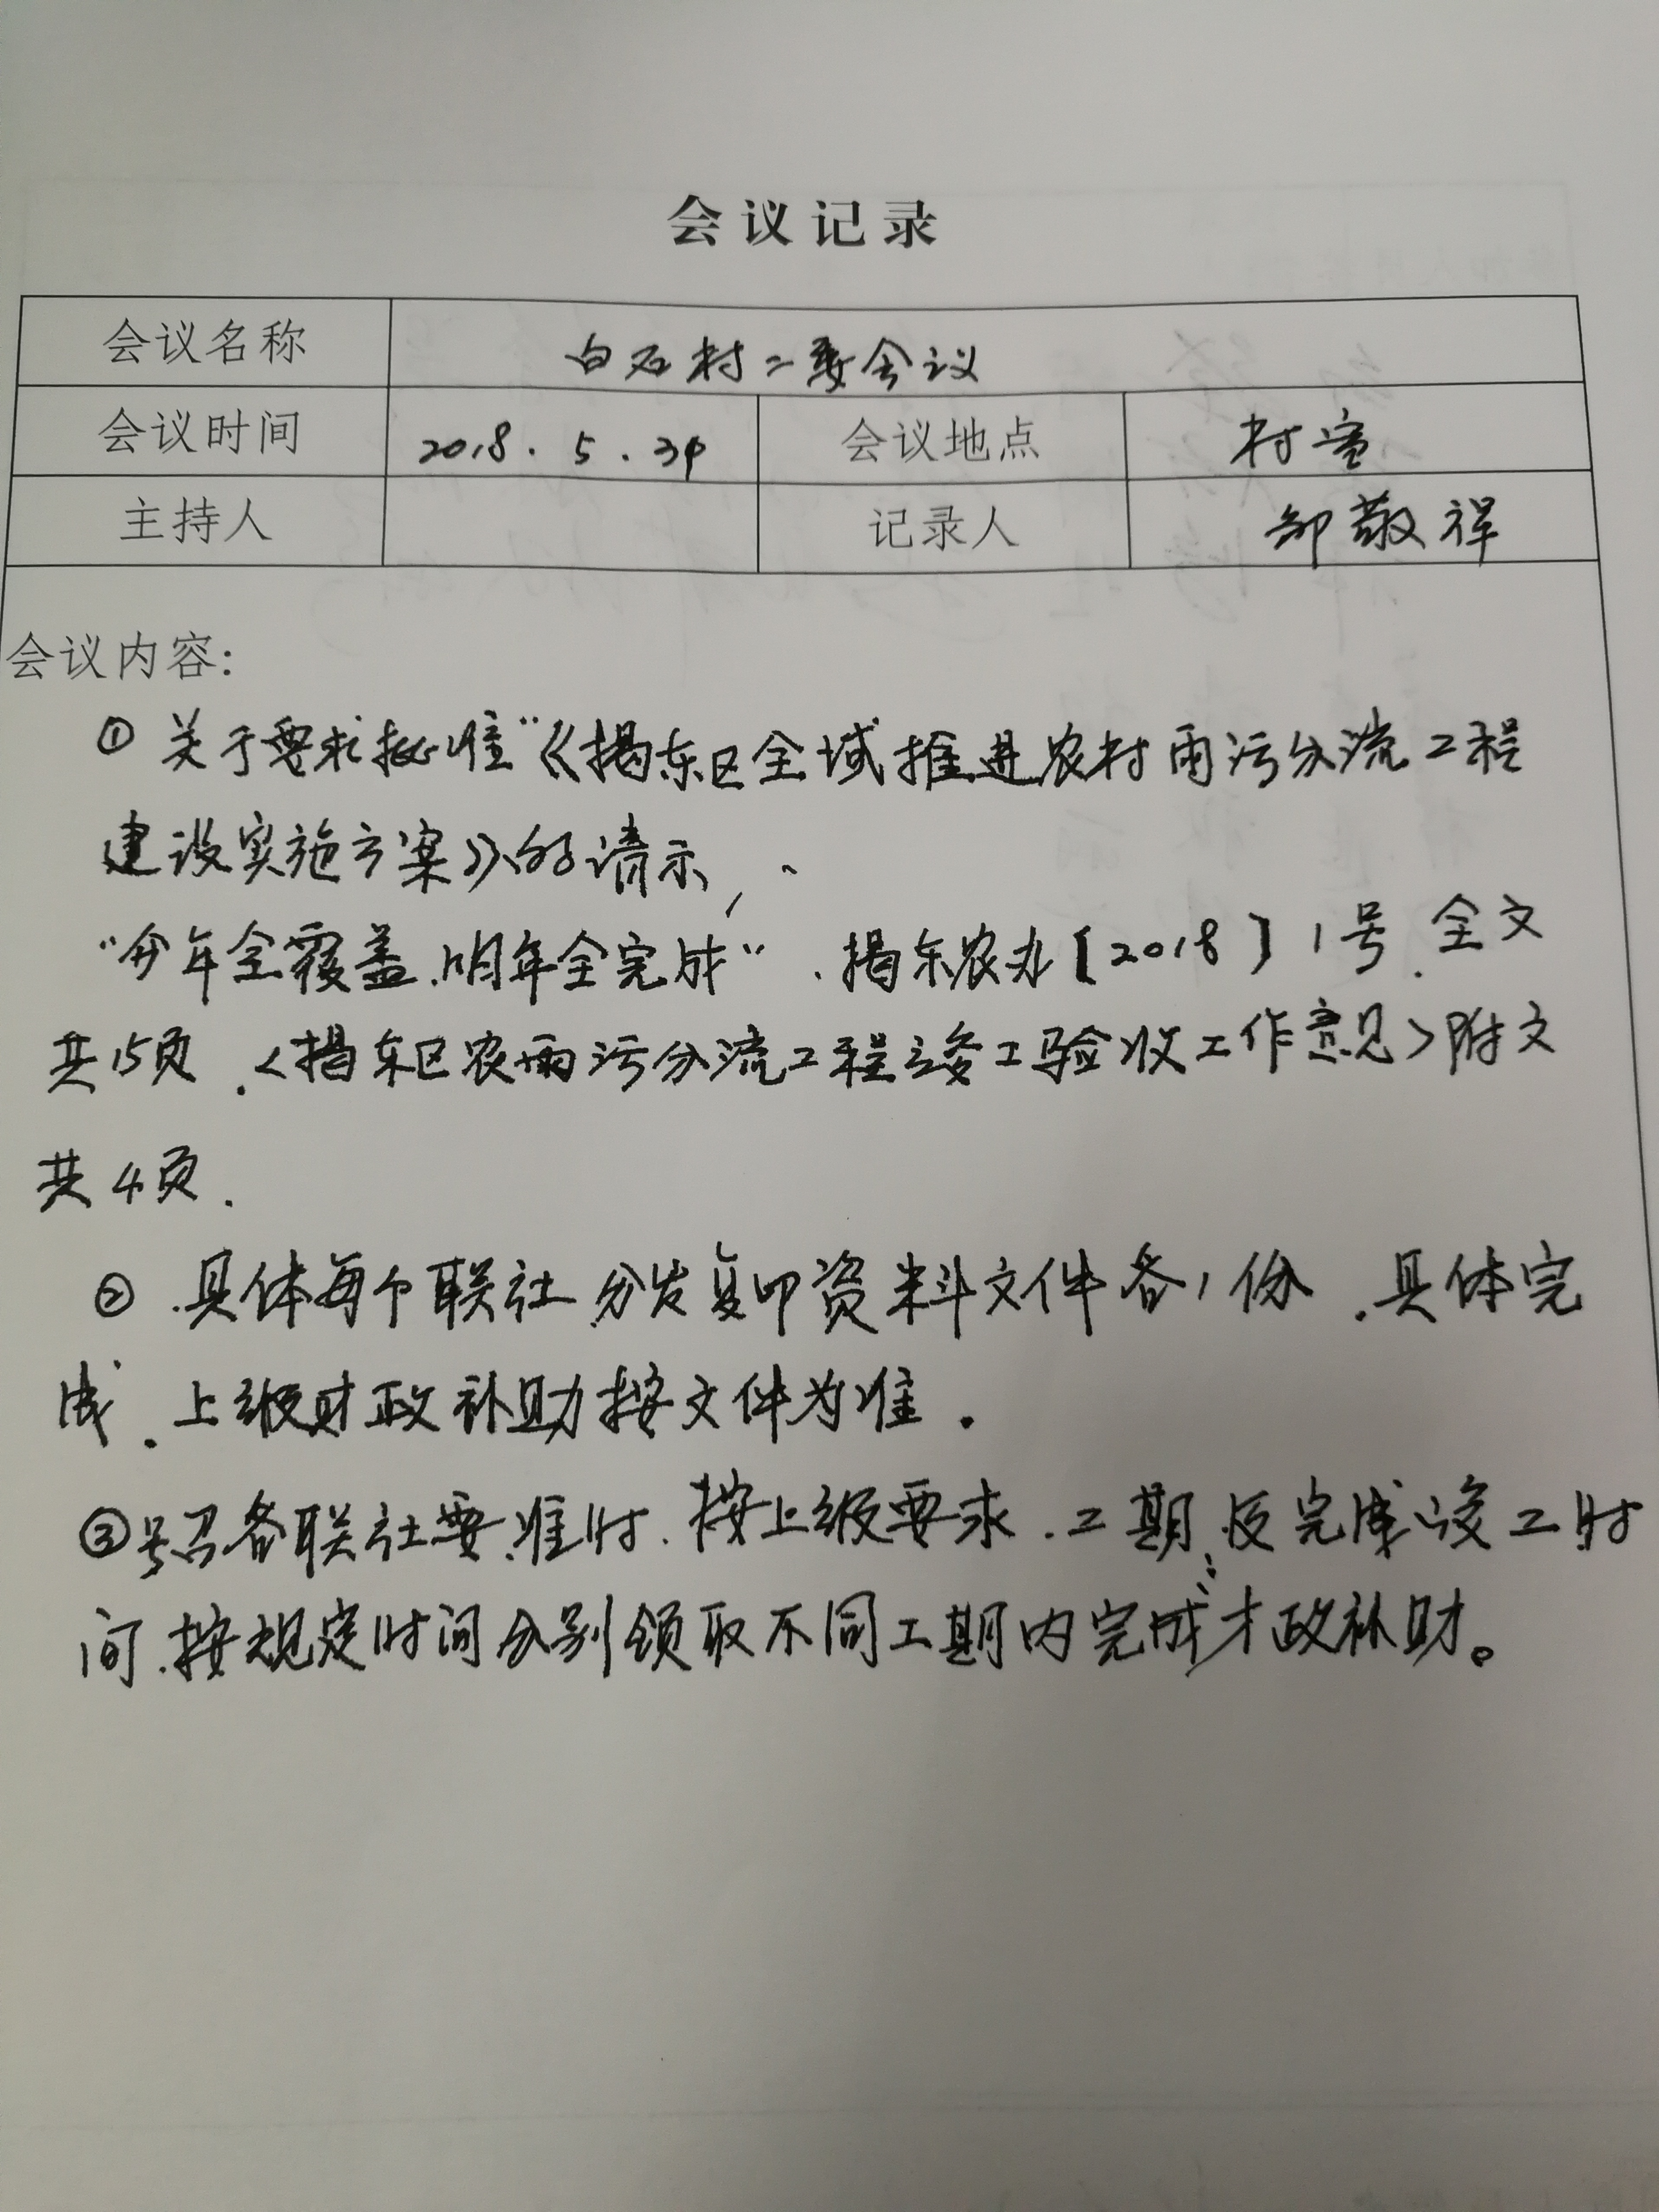 会议记录
会议名称 白石村二委会议
会议时间 2018.5. 会议地点 村
主持人 记录人 敬祥
会议内容:
① 关于要求批准"《揭东区全域推进农村雨污分流工程
建设实施方案》的请示,、
"今年全覆盖.明年全完成".揭东农办[2018]1号.全文
共15页.<揭东区农雨污分流工程竣工验收工作意见>附文
共4页.
② .具体每个联社.分发复印资料文件各1份.具体完
成.上级财政补助按文件为准.
③号召各联社要准时.按上级要求.工期.及完成竣工时
间.按规定时间分别领取不同工期内完成才政补财。